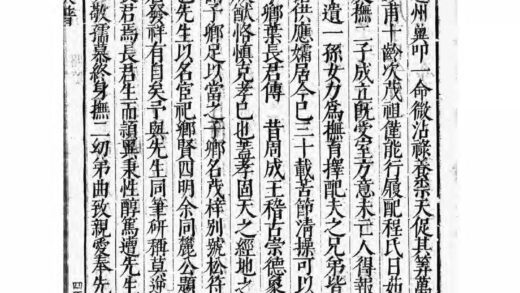 州臬叩一命微沾祿養崇天促其筭萬
甫十齡次茂祖僅能行履配程氏日茹
撫二子成立旣受室方意未亡人得報
遺一孫女力爲撫育擇配夫之兄弟皆
供應孀居今巳三十載苦節清操可以
鄉葉長君傳 昔周成王稽古崇德
猷恪愼克孝巳也葢孝固天之經地之
子卿足以當之子卿名茂梓別號松符
也先生以名宦祀鄉賢四明余同麓公題
發祥有自矣予與先生同筆研種莫逆
君焉長君生而頴異秉性醇篤遭先生
敬孺慕終身撫二幼弟曲致親愛奉先
譜
四